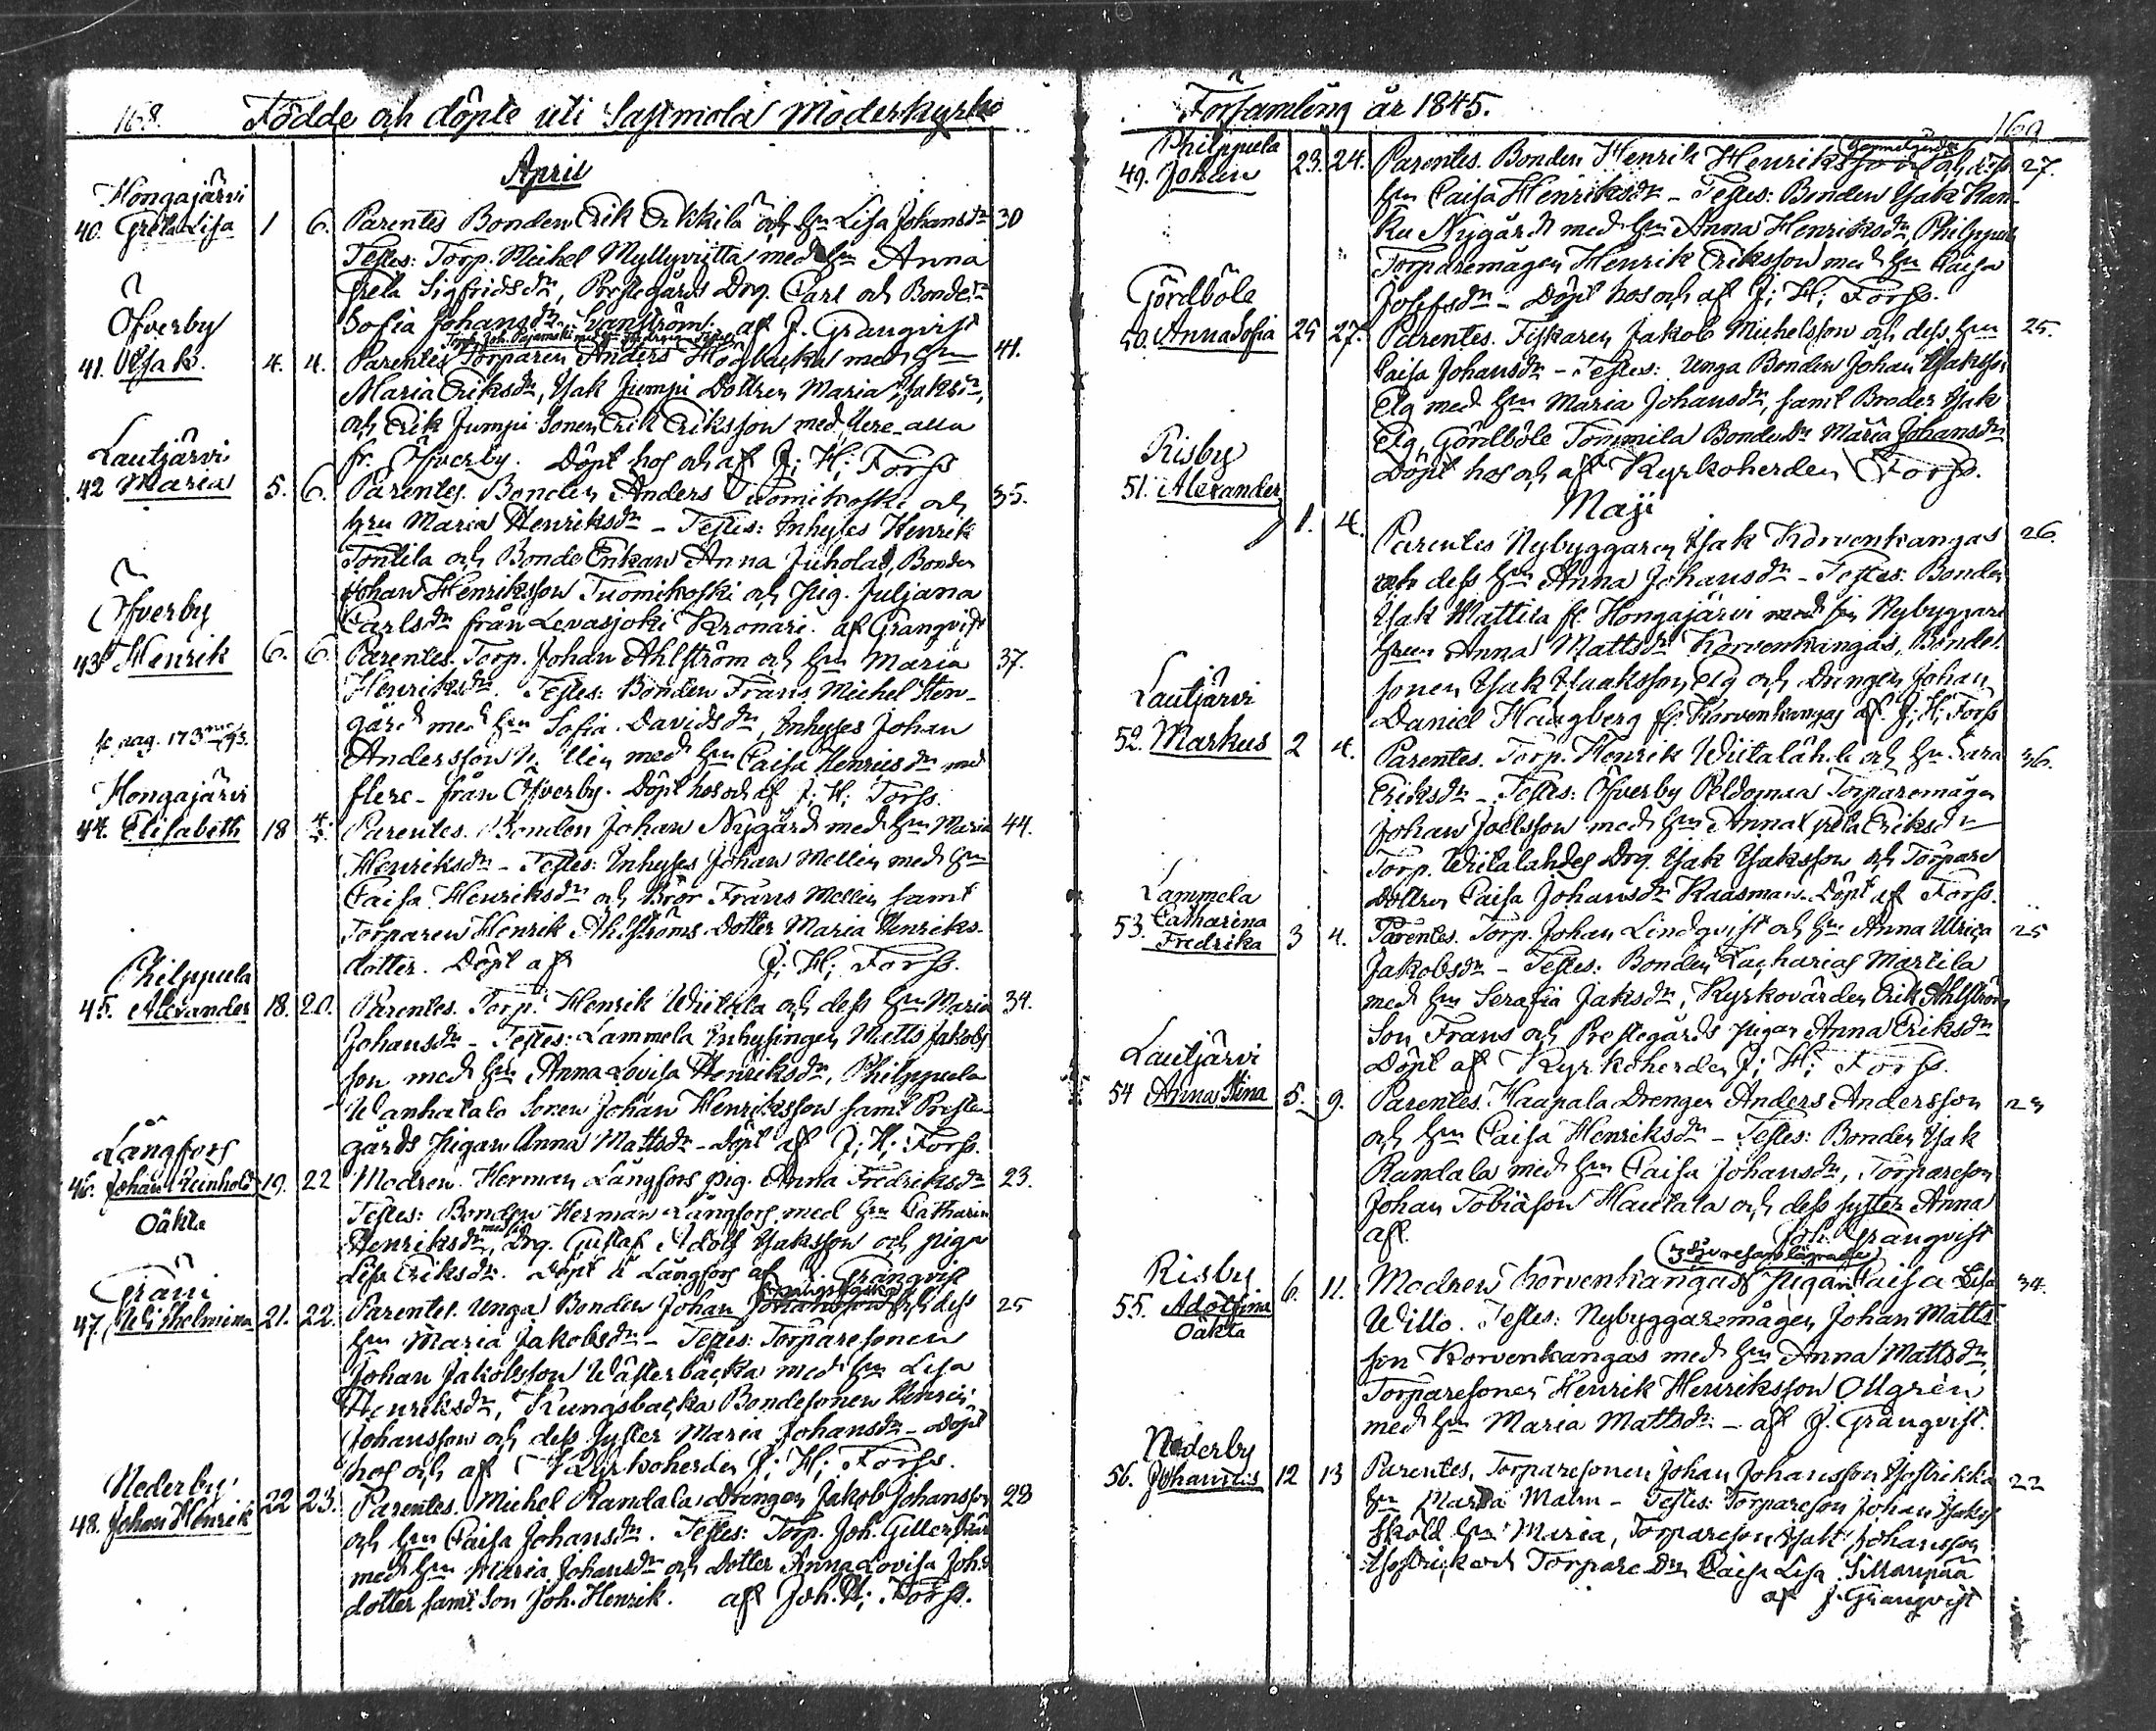 168. Födde och döpte uti Sastmola Moderkyrko
April
Hongajärvi
40. Greta Lisa 1 6. Parentes Bonden Erik Erkkilä och hru Lisa Johansdr 30
Testes: Torp. Michel Myllyviitta med hru Anna
Greta Sigfridsdr, Prestegårds Drg. Carl och Bondedr
Sofia Johansdr Svanström. af J. Granqvist
Öfverby
41. Isak. 4. 4. Parentes Torparen Anders Högbacka med hru 41.
Maria Eriksdr, Isak Jumpi Dottren Maria Isaksdr,
och Erik Jumpi Sonen Erik Eriksson med flere - alla
fr. Öfverby. Döpt hos och af J: H: Forss
Lautjärvi
42 Maria 5. 6. Parentes. Bonden Anders Tuomikoski och 35.
hru Maria Henriksdr - Testes: Inhyses Henrik
Tontila och Bonde Enkan Anna Juhola, Bonden
Johan Henriksson Tuomikoski och pig. Juljana
Carlsdr från Levasjoki Kronari. af Granqvist
Öfverby
43 Henrik 6. 6. Parentes. Torp. Johan Ahlström och hru Maria 37.
Henriksdr. Testes: Bonden Frans Michel Sten-
gård med hru Sofia Davidsdr, Inhyses Johan
Andersson med hru Caisa Henricsdr med
flere - från Öfverby. Döpt hos och af J: H: Forss.
Hongajärvi
44. Elisabeth 18 Parentes. Bonden Johan Nygård med hru Maria 44.
Henriksdr - Testes: Inhyses Johan Mellin med hru
Caisa Henriksdr och Bror Frans Mellin samt
Torparen Henrik Ahlströms Dotter Maria Henriks-
dotter. Döpt af J: H: Forss.
Philppula
45. Alexander 18. 20. Parentes. Torp. Henrik Wiitala och dess hru Maria 34.
Johansdr - Testes: Lammela Inhysingen Matts Jakobs
son med hru Anna Lovisa Henriksdr, Philppula
Wanhatalo Sonen Johan Henriksson samt Preste-
gårds pigan Anna Mattsdr - Döpt af J: H: Forss.
Långfors
46. Johan Reinhold 19. 22 Modren. Herman Långfors pig. Anna Fredriksdr 23.
Oäkta
Testes: Bonden Herman Långfors med hru Catharina
Henriksdr, Drg. Gustaf Adolf Isaksson och piga
Lisa Eriksdr. Döpt i Långfors af J. Granqvist
Gräni
47. Wilhelmina 21. 22. Parentes. Unga Bonden Johan Johansson och dess 25
hru Maria Jakobsdr - Testes: Torparesonen
Johan Jakobsson Wästerbacka med hru Lisa
Henriksdr, Kungsbacka Bondesonen Henric
Johansson och dess syster Maria Johansdr - Döpt
hos och af Kyrkoherden J: H: Forss.
Nederby
48. Johan Henrik 22 23. Parentes. Michel Randala Drengen Jakob Johansson 28
och hru Caisa Johansdr. Testes: Torp. Joh.
med hru Maria Johansdr och dotter Anna Lovisa Joh:s
dotter samt Son Joh. Henrik. af Joh. H: Forss.
Församling år 1845. 169
Philppula
49. Johan 23. 24. Parentes. Bonden Henrik Henriksson och dess 27.
hru Caisa Henriksdr - Testes: Bonden Isak Han-
ku Nygård med hru Anna Henriksdr, Philppula
Torparemågen Henrik Eriksson med hru Caisa
Josefsdr - Döpt hos och af J: H: Forss.
Gördböle
50. Anna Sofia 25 27. Parentes. Fiskaren Jakob Michelsson och dess hru 25.
Caisa Johansdr - Testes: Unga Bonden Johan Isaksson
Elg med hru Maria Johansdr, samt Broder Isak
Elg, Gördböle Tommila Bondedr Maria Johansdr
Döpt hos och af Kyrkoherden Forss.
Maji
Risby
51. Alexander 1. 4. Parentes Nybyggaren Isak Korvenkangas 26.
och dess hru Anna Johansdr - Testes: Bonden
Isak Mattila fr. Hongajärvi med hru Nybyggare
hrun Anna Mattsdr Korvenkangas, Bonde
sonen Isak Isaksson Elg och Drengen Johan
Daniel Haugberg fr. Korvenkangas af J: H: Forss
Lautjärvi
52. Markus 2 4. Parentes. Torp. Henrik Wiitalähde och hru Sara 36.
Eriksdr - Testes: Öfverby Peldomaa Torparemågen
Johan Joelsson med hru Anna Greta Eriksdr
Torp. Wiitalahdes Drg. Isak Isaksson och Torpare
dottren Caisa Johansdr Kaasman. Döpt af Forss.
Lammela
53. Catharina
Fredrika 3 4. Parentes. Torp. Johan Lindqvist och hru Anna Ulrica 25
Jakobsdr - Testes: Bonden Zacharias Martila
med hru Serafia Jaksdr, Kyrkovärden Erik Ahlström
Son Frans och Prestegårds pigan Anna Eriksdr
Döpt af Kyrkoherden J: H: Forss.
Lautjärvi
54 Anna Stina 5. 9. Parentes. Haapala Drengen Anders Andersson
och hru Caisa Henriksdr - Testes: Bonden Isak
Randala med hru Caisa Johansdr, Torpareson
Johan Tobiasson Hautala och dess syster Anna
af. Joh. Granqvist
Risby
55. Adolfina 6. 11. Modren Korvenkangas pigan Caisa Lisa 34.
Oäkta
Willo. Testes: Nybyggaremågen Johan Matts
son Korvenkangas med hru Anna Mattsdr,
Torparesonen Henrik Henriksson Ollgrèn
med hru Maria Mattsdr - af J. Granqvist.
Nederby
56. Johannes 12 13 Parentes, Torparesonen Johan Johansson 22
hru Maria Malm - Testes: Torpareson Johan Isakss
Sköld hru Maria, Torpareson Isak Johansson
och Torparedr Caisa Lisa Sillanpää
af J. Granqvist